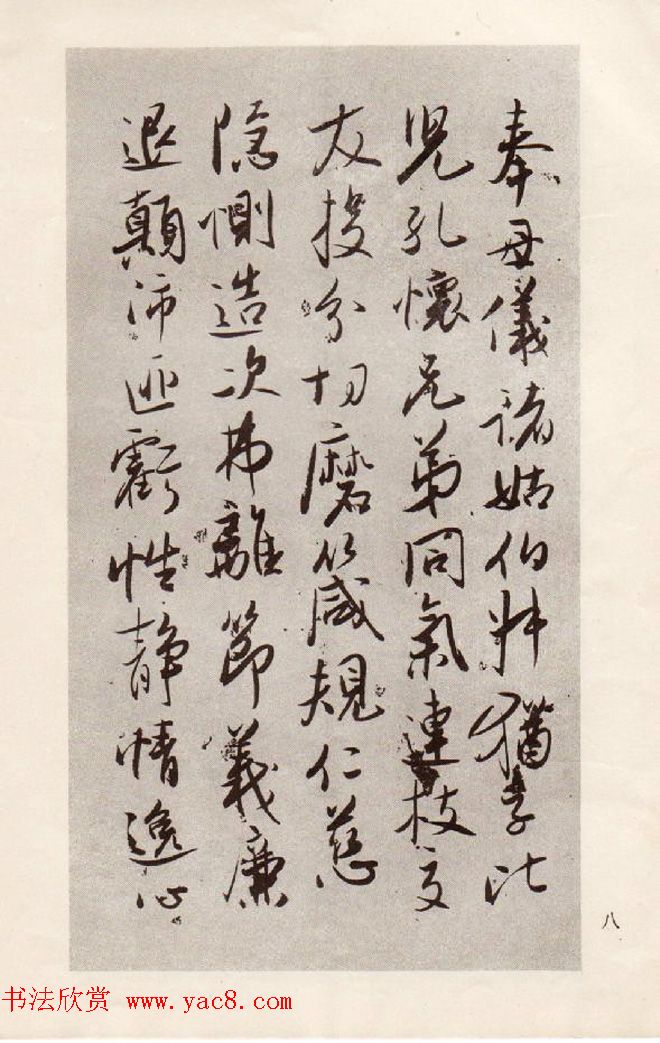 奉母儀諸姑伯叔猶子比
兒孔懷兄弟同氣連枝交
友投分切磨箴規仁慈
隐惻造次弗離節義廉
退顛沛匪虧性静情逸心
八
书法欣赏 www.yac8.com